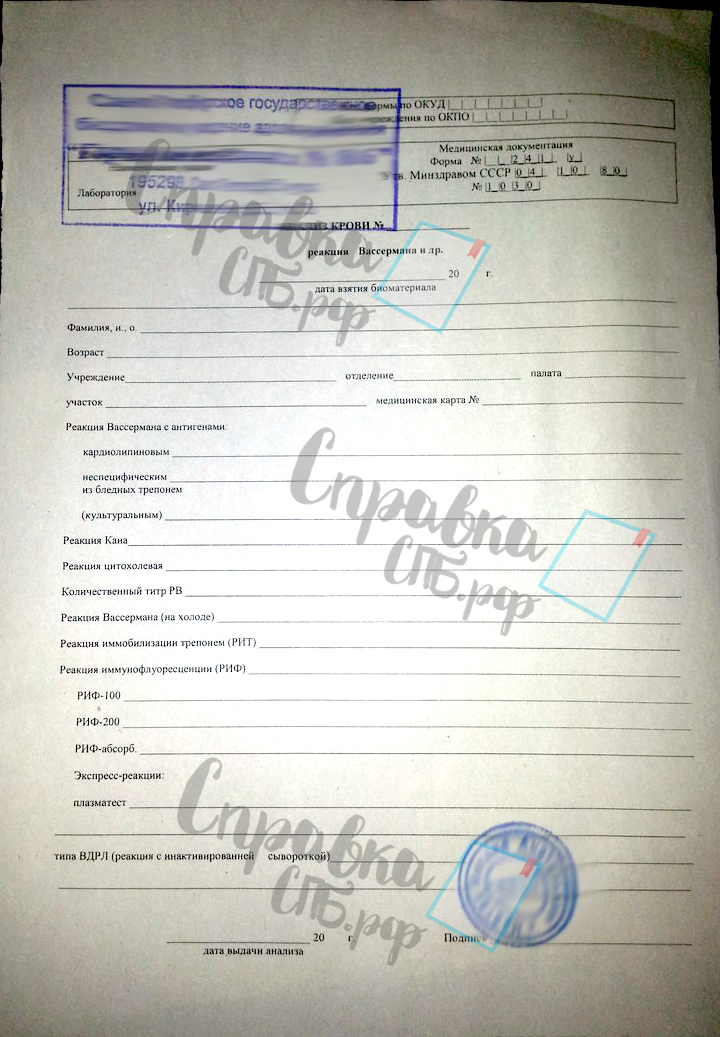 кое государственное
формы по ОКУД |_|_|_|_|_|_|_|
ние
по ОКПО |_|_|_|_|_|_|_|
Медицинская документация
Форма № |_|_|2|4|1|_|у|
195299
Утв. Минздравом СССР |0|4|_|1|0|_|8|0|
№ |1|0|3|0|
Лаборатория
ул.
КРОВИ №
реакция Вассермана и др.
20 г.
дата взятия биоматериала
Фамилия, и., о.
Возраст
Учреждение отделение палата
участок медицинская карта №
Реакция Вассермана с антигенами:
кардиолипиновым
неспецифическим
из бледных трепонем
(культуральным)
Реакция Кана
Реакция цитохолевая
Количественный титр РВ
Реакция Вассермана (на холоде)
Реакция иммобилизации трепонем (РИТ)
Реакция иммунофлуоресценции (РИФ)
РИФ-100
РИФ-200
РИФ-абсорб.
Экспресс-реакции:
плазматест
типа ВДРЛ (реакция с инактивированней сывороткой)
20 г.
Подпись
дата выдачи анализа
Справка
СПБ.рф
Справка
СПБ.рф
Справка
СПБ.рф